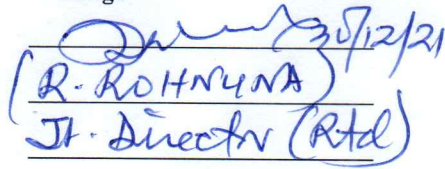 30/12/21
(R. ROHNUNA)
Jt. Director (Rtd)